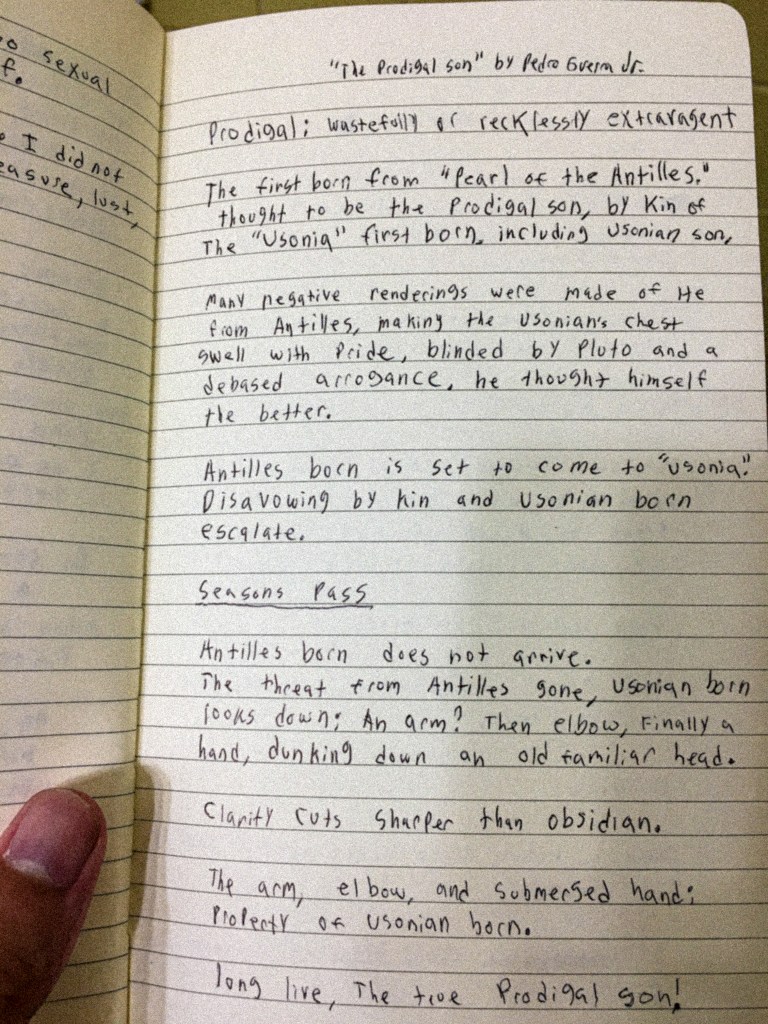 o sexual
f.
I did not
easure, lust,
"The Prodigal son" by Pedro Guerra Jr.
Prodigal; wastefully or recklessly extravagent
The first born from "Pearl of the Antilles."
thought to be the Prodigal son, by Kin of
The "Usonia" first born, including Usonian son,
Many negative renderings were made of He
from Antilles, making the Usonian's chest
swell with Pride, blinded by Pluto and a
debased arrogance, he thought himself
the better.
Antilles born is set to come to "usonia".
Disavowing by kin and Usonian born
escalate.
Seasons Pass
Antilles born does not arrive.
The threat from Antilles gone, Usonian born
looks down; An arm? Then elbow, Finally a
hand, dunking down an old familiar head.
Clarity cuts sharper than obsidian.
The arm, elbow, and submerged hand;
Property of Usonian born.
long live, The true Prodigal son!